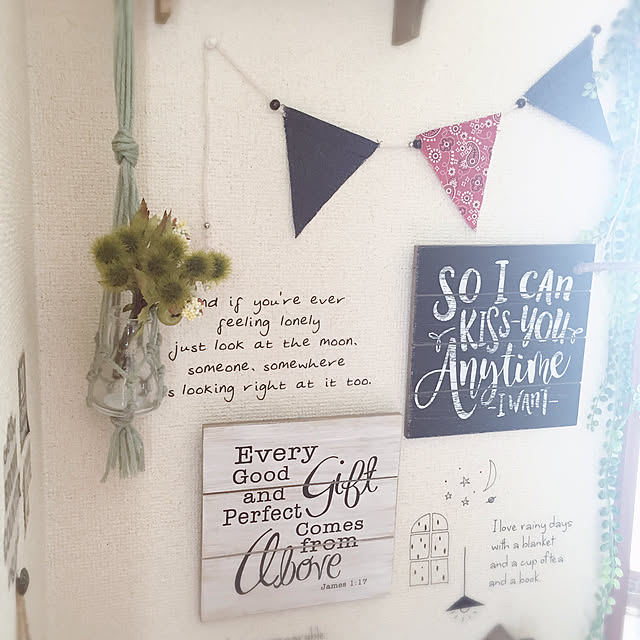 and if you're ever
feeling lonely
just look at the moon.
someone, somewhere
is looking right at it too.
SO I CAN
KISS YOU
Anytime
I WANT
Every
Good
and
Perfect
Gift
Comes
from
Above
James 1:17
I love rainy days
with a blanket
and a cup of tea
and a book.